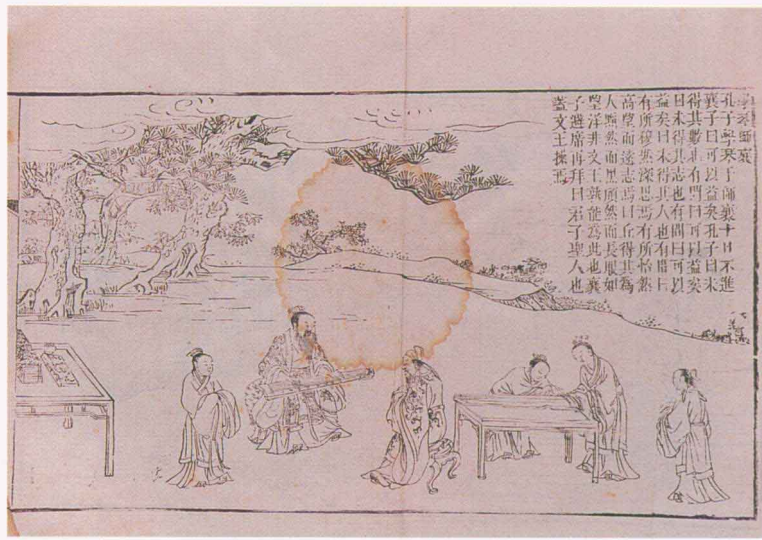 學琴師襄
孔子學琹于師襄十日不進
襄子曰可以益矣孔子曰未
得其數也有間曰可以益矣
曰未得其志也有間曰可以
益矣曰未得其人也有間曰
有所穆然深思焉有所怡然
高望而遠志焉曰丘得其為
人黯然而黑頎然而長眼如
望洋非文王孰能為此也襄
子避席再拜曰君子聖人也
蓋文王操焉